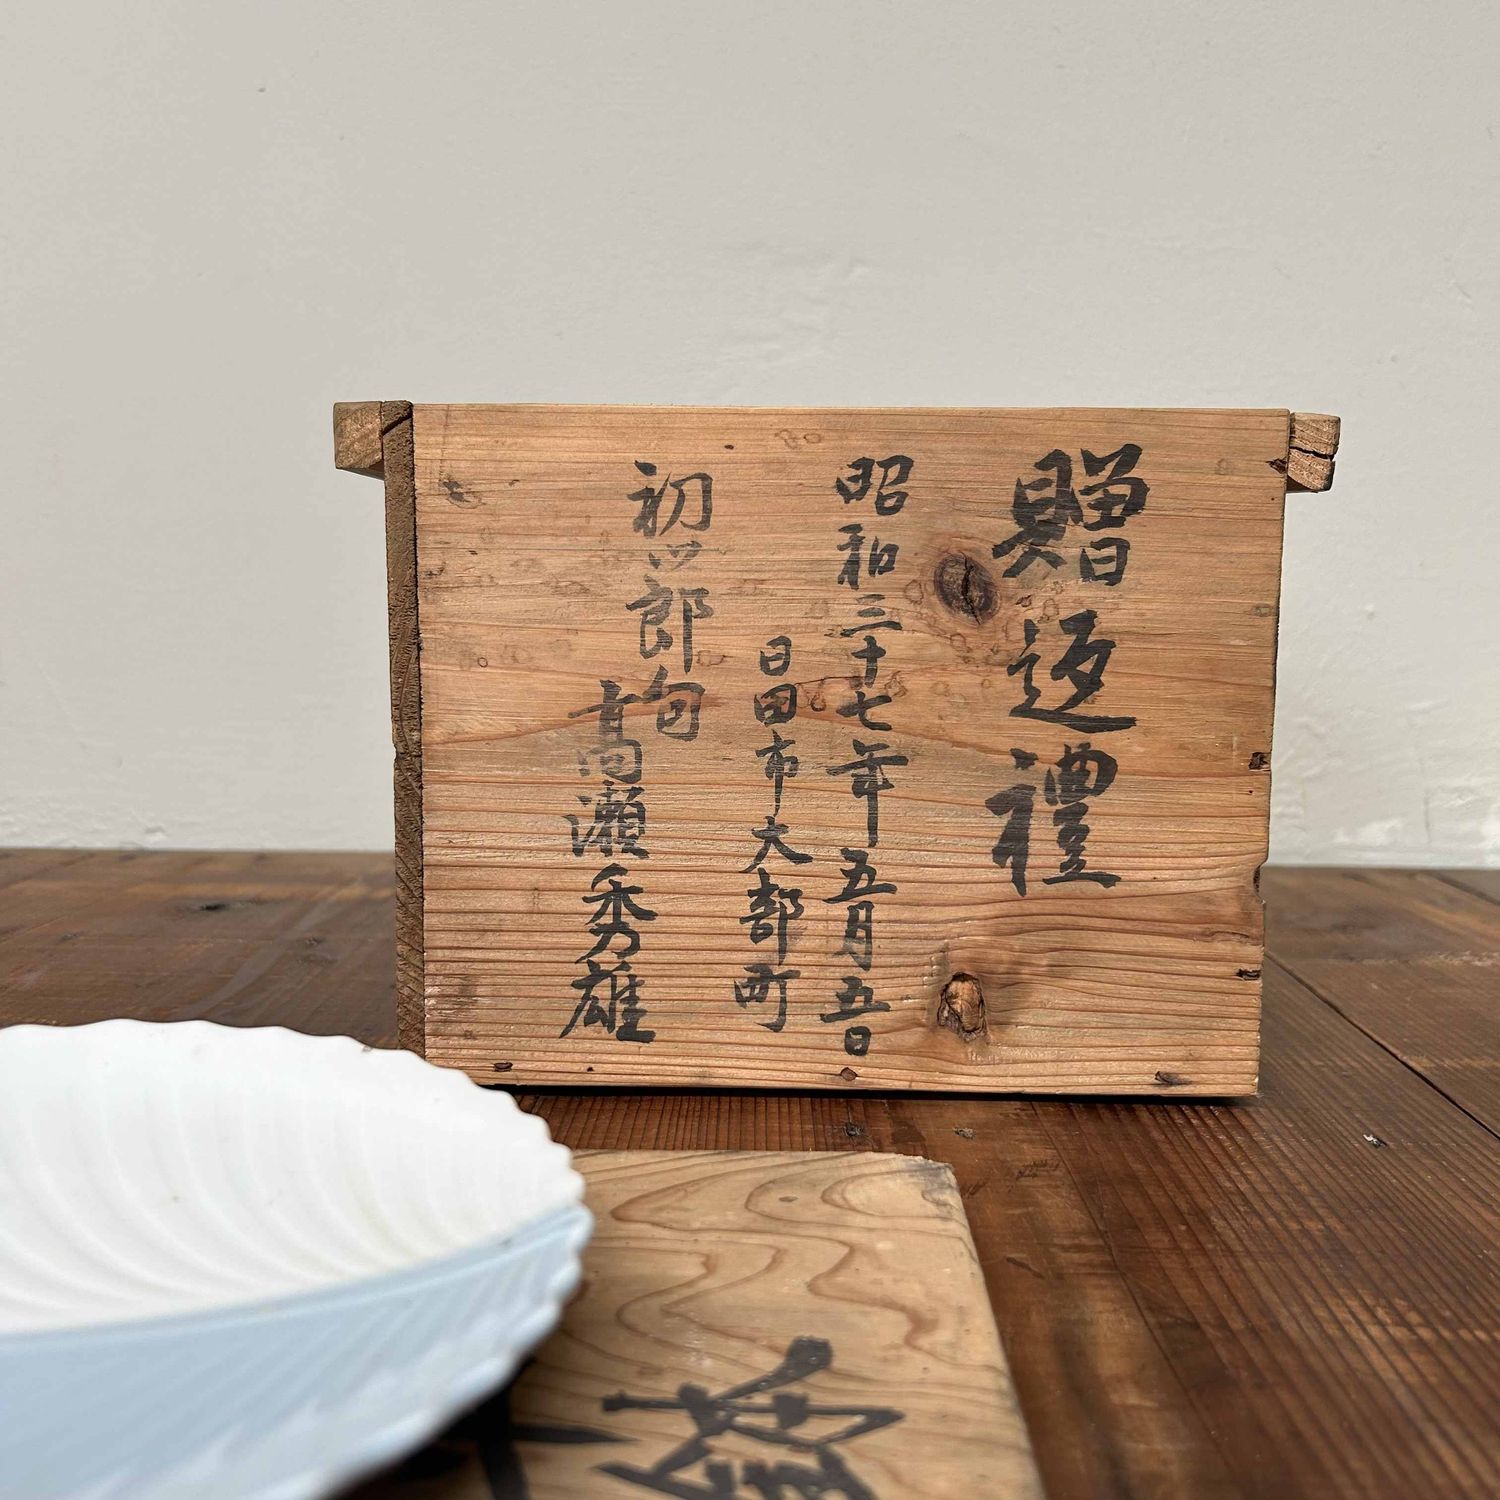 贈返禮
昭和三十七年五月五日
日田市大部町
初
郎句
高瀬秀雄
鉢